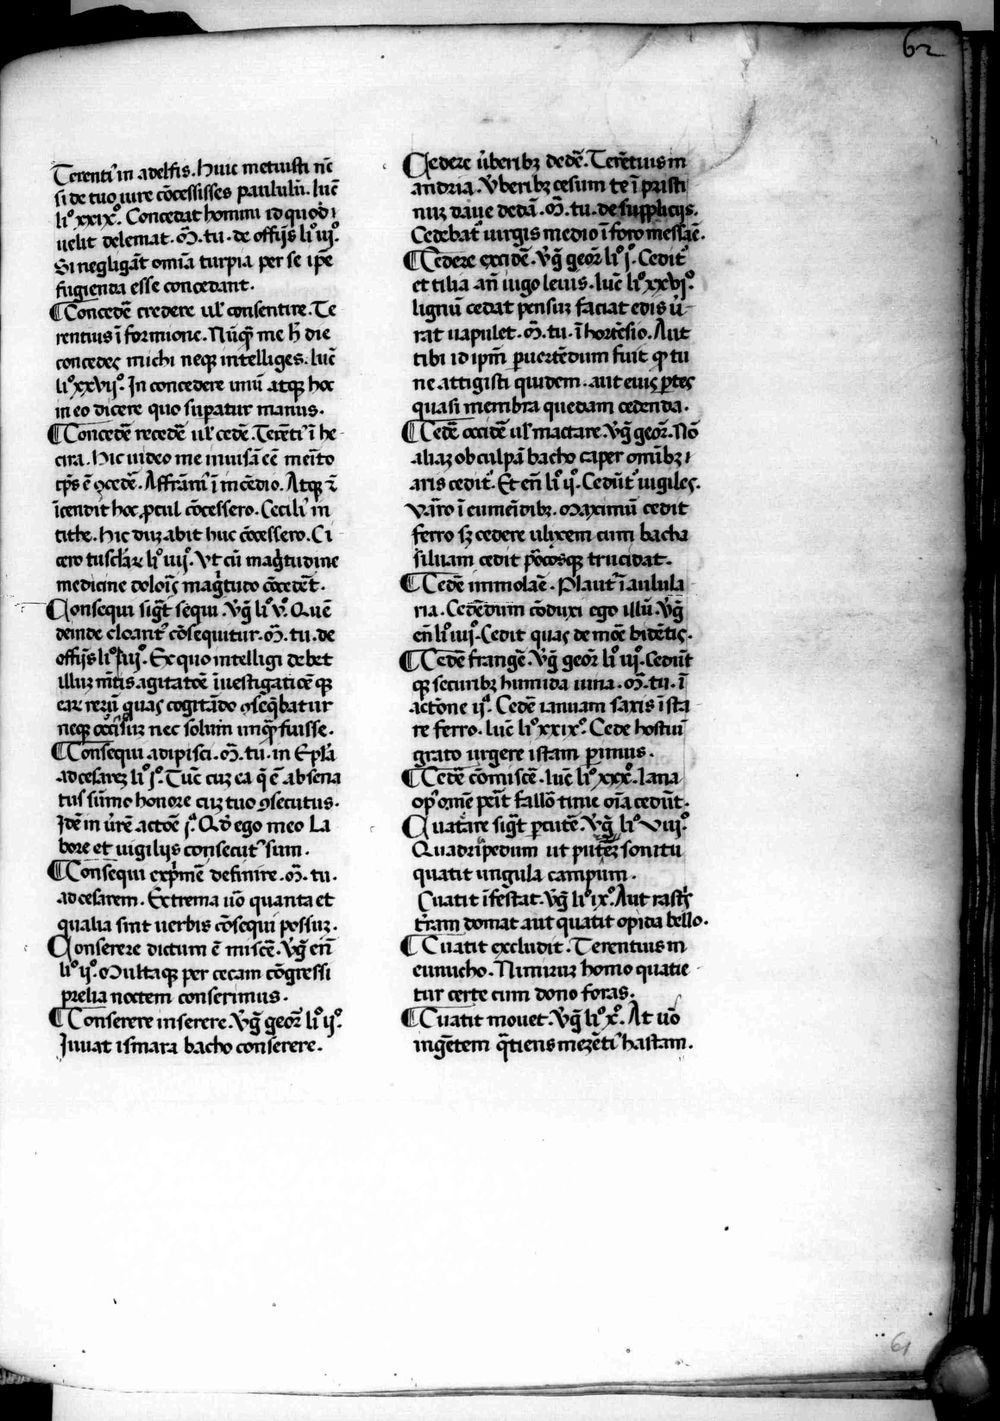 62
Terenti᷒ in adelfis. Huic metuisti nē
si de tuo iure cōcessisses paululū. luc̄
li° xxix°. Concedat homini id quod i
uelit delemat. M̄. tu. de offijs li° iij°.
Si negligāt omīa turpia per se ip̄e
fugienda esse concedant.
¶Concedē credere ul᷒ consentire. Te
rentius ī formione. Nūq̄ꝫ me h̄ die
concedes michi neqꝫ intelliges. luc̄
li° xxvij°. In concedere unū atqꝫ hoc
in eo dicere quo sup̄atur manus.
¶Concedē recedē ul᷒ cedē. Terēti᷒ ī he
cira. Hic uideo me inuisā eē merito
ꝯcedē. Affrāni᷒ ī incēdio. Atqꝫ
īcendit hoc p̄cul cōcessero. Cecili᷒ in
tithe. Hic duꝫ abit huc cōcessero. Ci
cero tuscl̄aꝝ li° iiij°. Vt cū magītudine
medicine dolois magītudo cōcedēt.
Consequi sigt᷒ sequi. v̄g li° v°. Quē
deinde cloant᷒ cōsequitur. M̄. tu. de
offijs li° iij°. Ex quo intelligi debet
illuꝫ mētis agitatōē īuestigaticē qꝫ
eaꝝ rerū quas cogitādo ꝯseq̄batur
neqꝫ occisuꝫ nec solum unq̄ꝫ fuisse.
¶Consequi adipisci. M̄. tu. in Epl̄a
ad cesareꝫ li° j°. Tūc cuꝫ ea q̄ ē absena
tus sūmo honore cuꝫ tuo ꝯsecutus.
Idē in u̓rē actōē jᵃ. Qd̓ ego meo La
bore et uigilijs consecut᷒ sum.
¶Consequi exp̄mē definire. M̄. tu.
ad cesarem. Extrema uō quanta et
qualia sint uerbis cōsequi possuꝫ.
Conserere dictum ē miscē. v̄g en̄
li° ij°. Multaqꝫ per cecam cōgressi
prelia noctem conserimus.
¶Conserere inserere. v̄g geor̄ li° ij°.
Iuuat ismara bacho conserere.
Cedere u̓beribꝫ dedē. Terētius in
andria. v̓beribꝫ cesum te ī pristi
nuꝫ daue dedā. M̄. tu. de supplicijs.
Cedebat᷒ uirgis medio ī foro messāe.
¶Cedere excidē. v̄g geor̄ li° j°. Cedit᷒
et tilia an̄ iugo leuis. luc̄ li° xxvj°.
lignū cedat pensuꝫ faciat edis u̓
rat uapulet. M̄. tu. ī hortēsio. Aut
tibi id ip̄m puertēdum fuit q̄ tu
ne attigisti quidem. aut eius ꝑtes
quasi membra quedam cedenda.
¶Cedē occidē ul᷒ mactare. v̄g geor̄. Nō
aliaꝫ ob culpā bacho caper omībꝫ i
aris cedit᷒. Et en̄ li° ij°. Cedūt᷒ uigiles.
Varro ī eumeīdibꝫ. Maximū cedit
ferro sꝫ cedere ulixem cum bacha
siluam cedit p̄cosqꝫ trucidat.
¶Cedē immolaē. Plaut᷒ ī aulula
ria. Cedēdum cōduxi ego illū. v̄g
en̄ li° iiij°. Cedit quas de moē bidētis.
¶Cedē frangē. v̄g geor̄ li° iij°. Cedūt᷒
qꝫ securibꝫ humida uina. M̄. tu. ī
actōne ijᵃ. Cedē ianuam saxis ista
re ferro. luc̄ li° xxix°. Cede hostiū
grato urgere istam primus.
¶Cedē cōmiscē. luc̄ li° xxx°. Iana
op᷒ omē peit fallō time oīa cedūt.
Quatare sigt᷒ ꝑcutē. v̄g li° viij°.
Quadrip̄edum ut putrēꝫ sonitu
quatit ungula campum.
Cuatit īfestat. v̄g li° ix°. Aut rastr̄
t̄ram domat aut quatit opida bello.
¶Cuatit excludit. Terentius in
eunucho. Nimiruꝫ homo quatie
tur certe cum dono foras.
¶Cuatit mouet. v̄g li° x°. At uō
ingētem q̄tiens mezēti᷒ hastam.
61